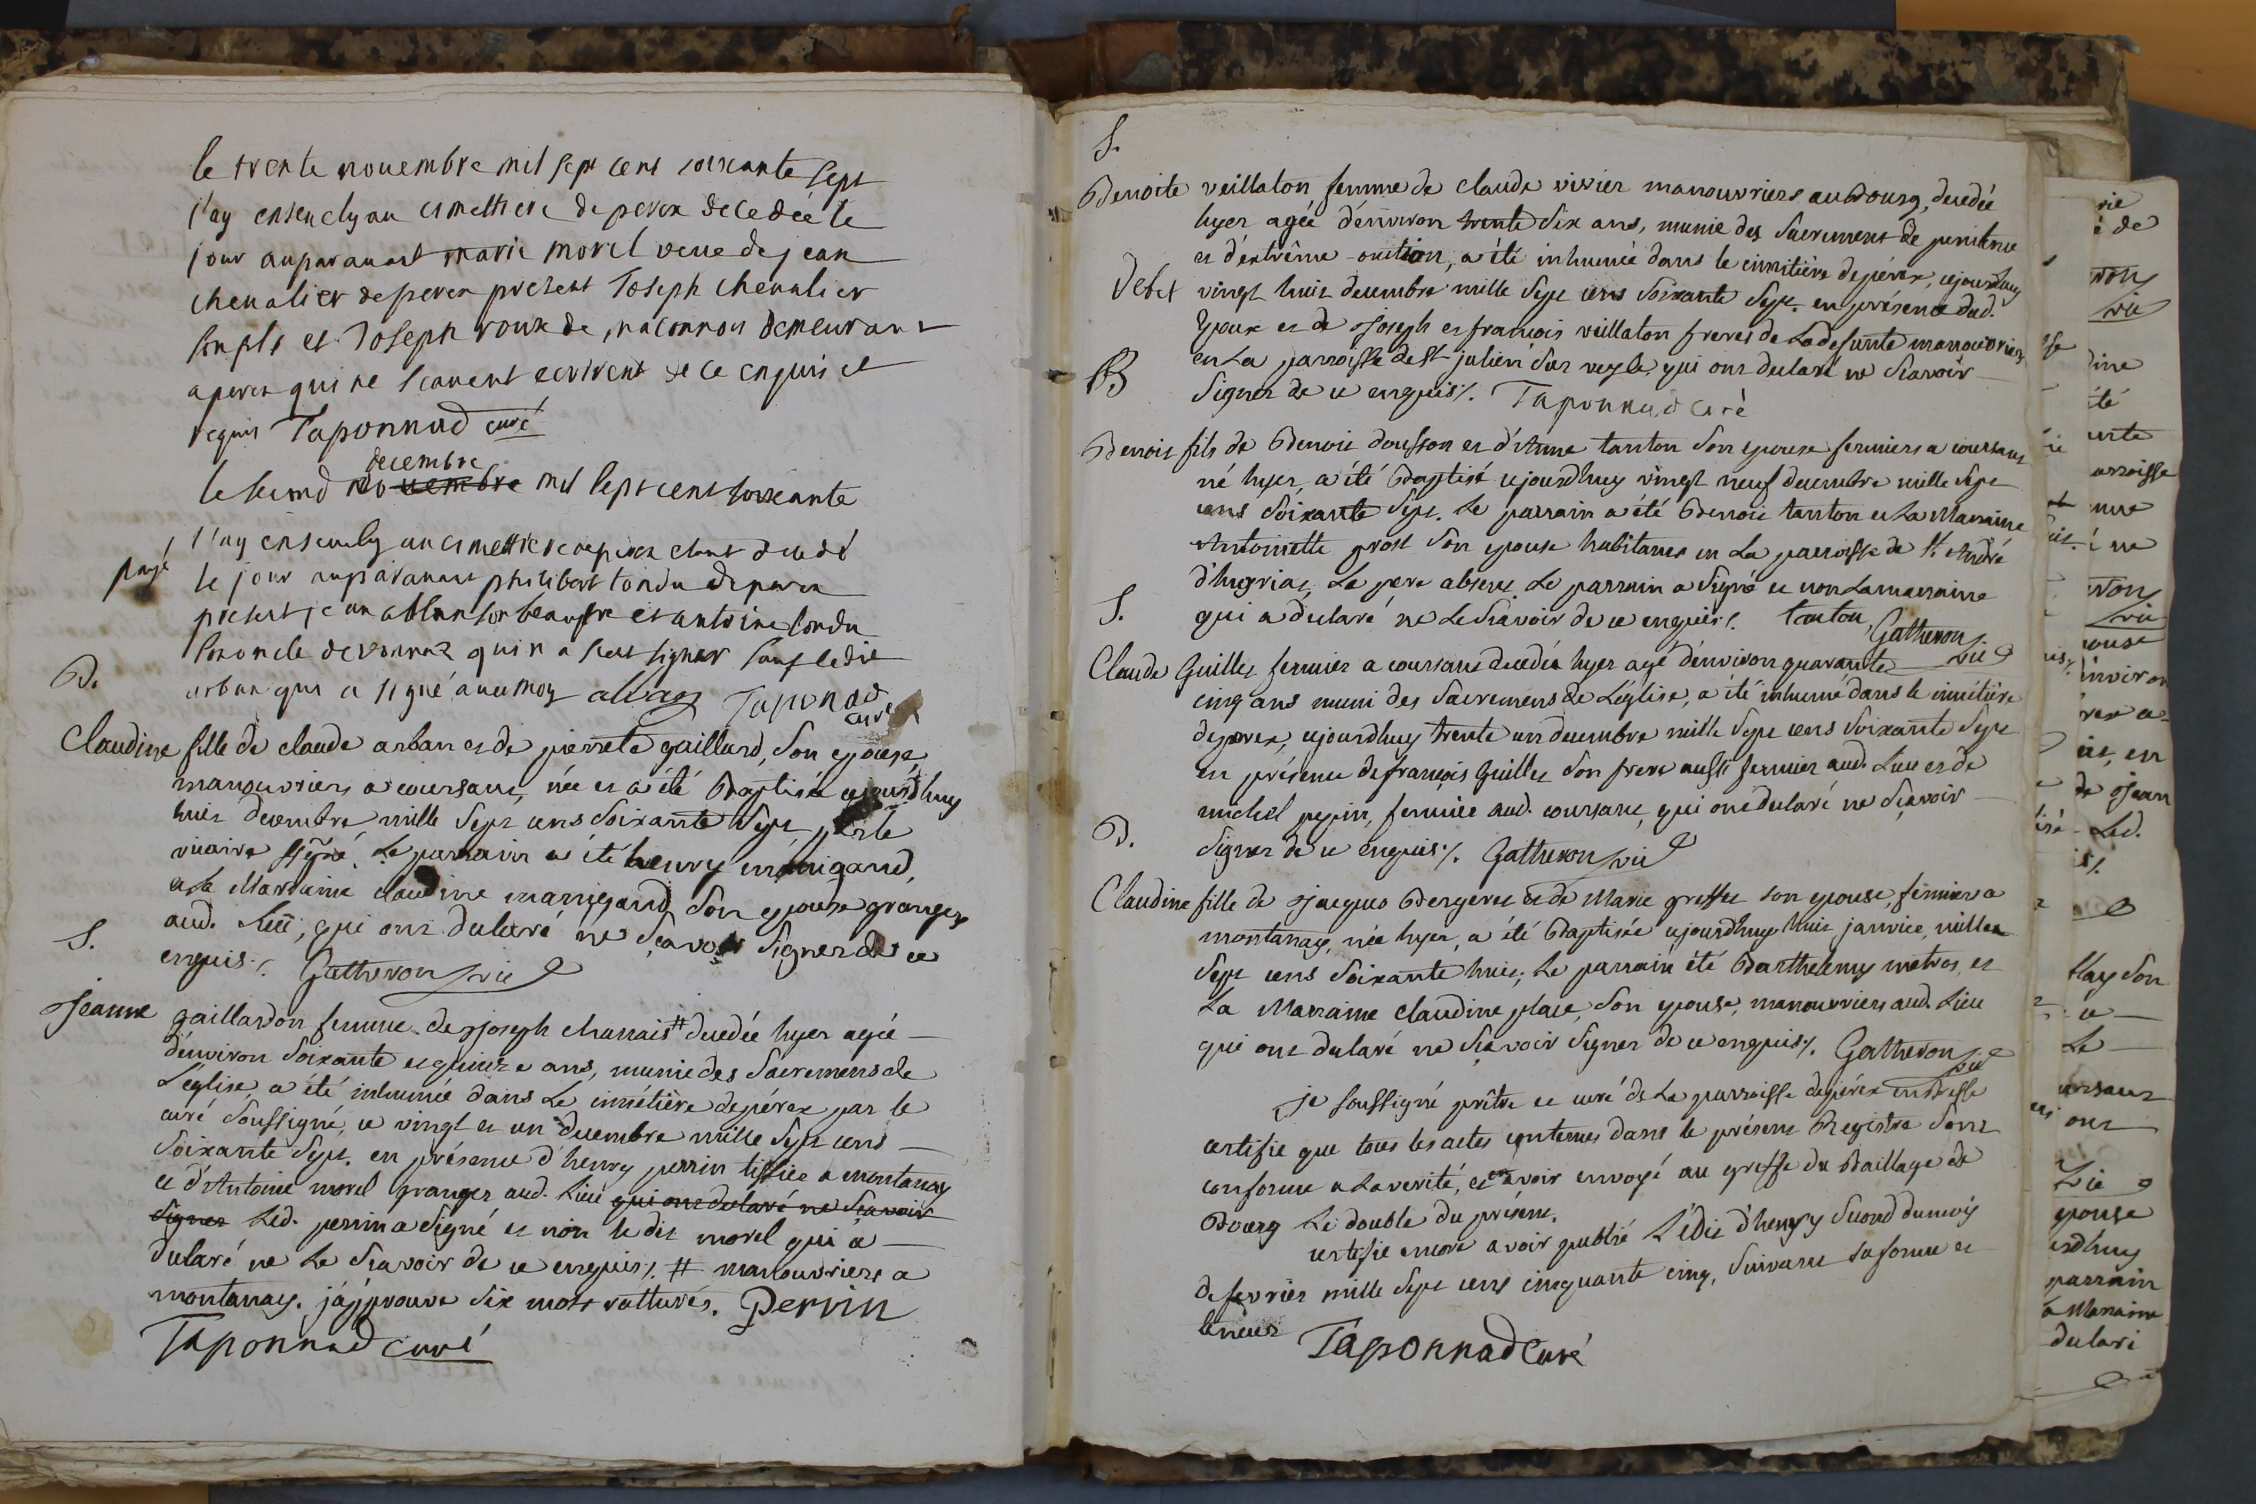 le trente novembre mil sept cent soixante sept
j'ay enseuely au cimettiere de perex decedée le
jour auparauant marie morel veue de jean
chevalier de perex present Joseph chevalier
son fils et Joseph roux de maconnou demeurant
a perex qui ne scauent ecrirent de ce enquis et
requis Taponnad curé
decembre
le second novembre mil sept cent soixante
payé
j'ay enseuely au cimettiere de perex etant decedé
le jour auparavant philibert tondu de perex
present jean alban son beaufre et antoine tondu
son oncle de vonnaz qui n'a sceut signer sauf ledit
arban qui a signé auec moy alban Taponad
curé
B.
Claudine fille de claude arban et de pierrete gaillard, son epouse
manouvriers a coursant, née et a été Baptisée cejourd'huy
huit decembre mille Sept cens Soixante Sept, par le
vicaire signé. Le parrain a été henry mangand,
et la Marraine claudine mangand Son epouse granger
aud. lieu, qui ont declaré ne Sçavoir Signer de ce
enquis ./. Gatheron vic
S.
Jeanne gaillardon femme de joseph chanais # decedée hyer agée
d'environ Soixante et quinze ans, munie des Sacremens de
L'église, a été inhumée dans Le cimétière de pérex par le
curé Soussigné, ce vingt et un decembre mille Sept cens
Soixante Sept. en présence d'henry perrin tissier a montanay
et d'Antoine morel granger aud. Lieu qui ont declaré ne Sçavoir
signer Led. perrin a Signé et non le dit morel qui a
declaré ne Le Sçavoir de ce enquis ./. # manouvriers a
montanay. j'approuve Six mots ratturés. Perrin
Taponnad curé
S.
Benoite veillaton femme de claude vivier manouvriers au Bourg, decedée
hyer agée d'environ trente Six ans, munie des Sacremens de penitence
et d'extrême-onction, a été inhumée dans le cimitière de pérex, cejourdhuy
debet vingt huit decembre mille Sept cens Soixante Sept. en présence dud.
Epoux et de Joseph et françois veillaton freres de La defunte manouvriers
en La parroisse de St julien Sur veyle, qui ont declaré ne Sçavoir
B
Signer de ce enquis ./. Taponnad curè
Benoit fils de Benoit dousson et d'Anne tanton Son epouse fermiers a coursant
né hyer, a été Baptisé cejourdhuy vingt neuf decembre mille Sept
cens Soixante Sept. Le parrain a été Benoit tanton et La Marraine
Antoinette prost Son epouse habitans en La parroisse de St André
d'hugriat, Le pere absent. Le parrain a Signé et non La marraine
S.
qui a declaré ne Le Sçavoir de ce enquis ./. tanton, Gatheron
vic
Claude Guillet fermier a coursant decedée hyer agé d'environ quarante
cinq ans muni des Sacremens de L'église, a été inhumé dans le cimétière
de perex, cejourdhuy trente un decembre mille Sept cens Soixante Sept
en présence de françois Guillet Son frere aussi fermier aud. Lieu et de
michel pepin, fermier aud. coursant, qui ont declaré ne Sçavoir
B.
Signer de ce enquis ./. Gatheron vic
Claudine fille de Jacques Bergeret et de Marie greffet son epouse, fermier a
montanay, née hyer, a été Baptisée cejourdhuy huit janvier, mille
Sept cens Soixante huit; Le parrain été Barthelemy metras, et
La Marraine claudine place, Son epouse, manouvriers aud. Lieu
qui ont declaré ne Sçavoir Signer de ce enquis ./. Gatheron
vic
je Soussigné prêtre et curé de La parroisse de pérex en Bresse
certifie que tous les actes contenus dans le présent Registre Sont
conforme a La verité, et en avoir envoyé au greffe du Baillage de
Bourg Le double du présent.
certifie encore avoir publié L'édit d'henry Second du mois
de fevrier mille Sept cens cinquante cinq, Suivant sa forme et
teneur
Taponnad Curé
rie
é de
ron
vic
ine
été
ente
arroisse
nne
é ne
ron
vic
pouse
environ
rex a
en
de Jean
Led.
is ./.
Lay Son
ce
Le
oursant
ont
vic
epouse
rdhuy
parrain
a Marraine
declaré